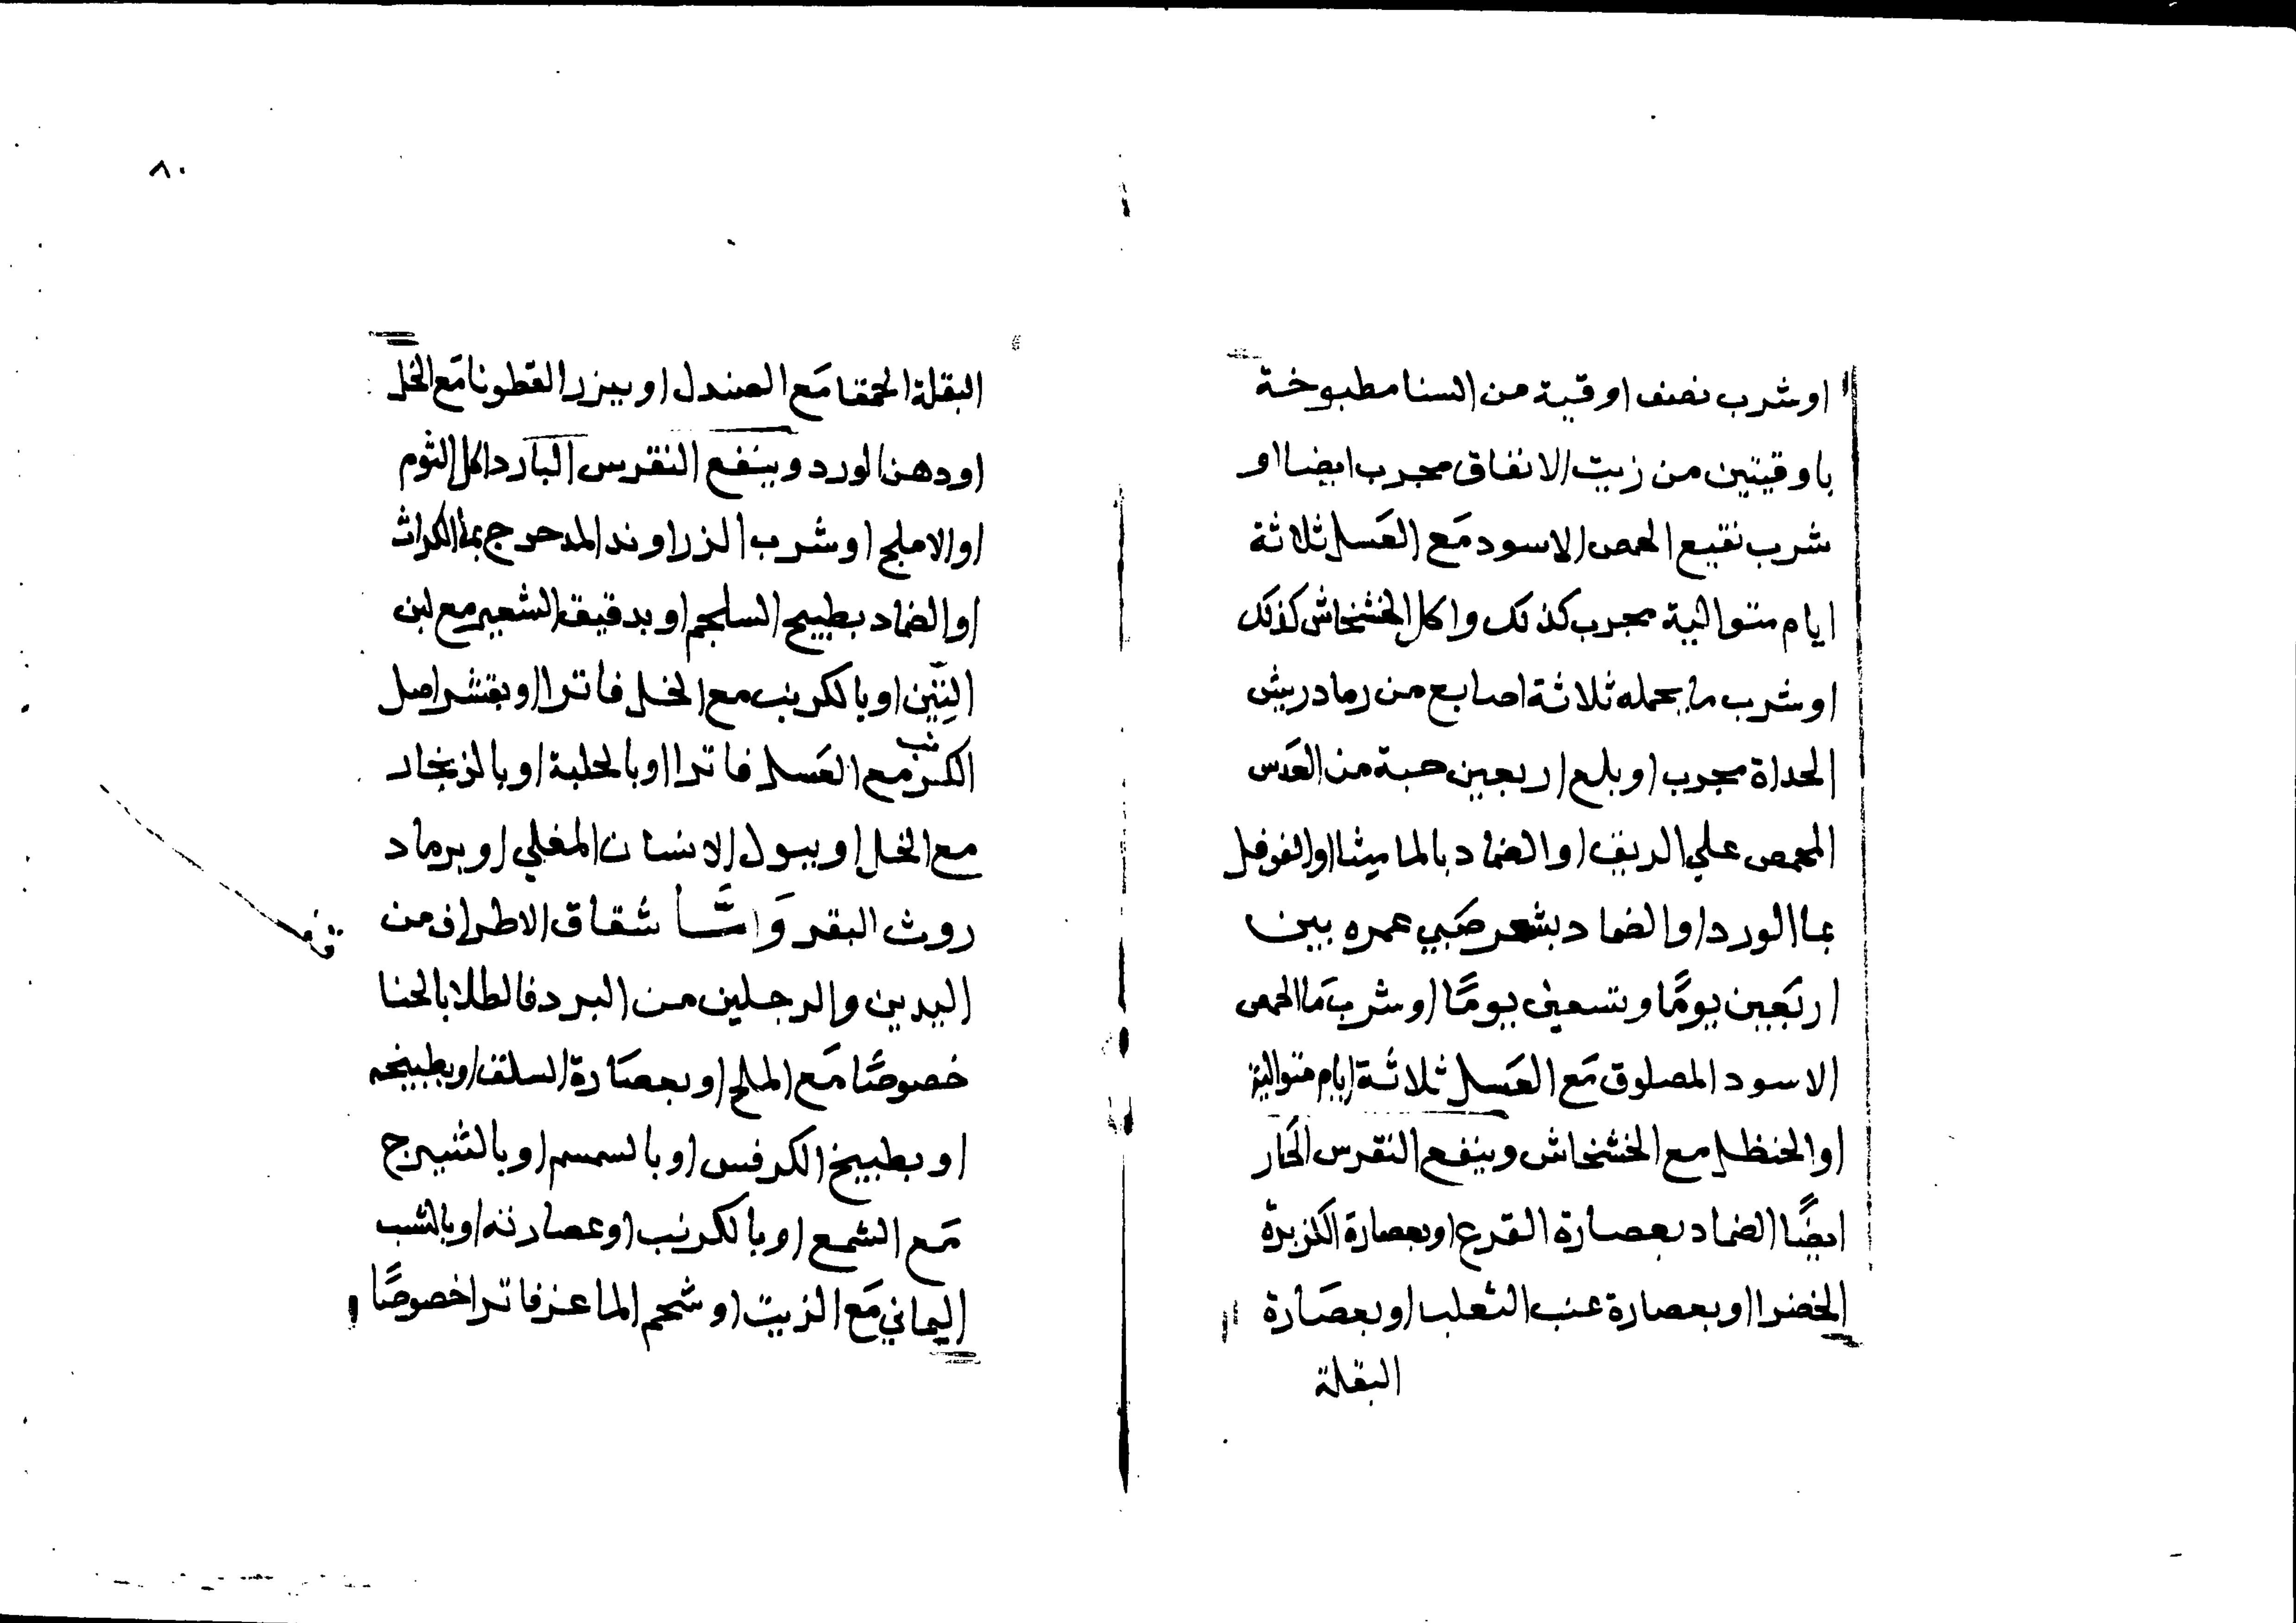 اوشرب نصف اوقية من السنا مطبوخة
باوقيتين من زيت الانفاق مجرب ايضا او
شرب نقيع الحمص الاسود مَع العَسل ثلاثة
ايام متوالية مجرب كذلك واكل الخشخاش كذلك
اوشرب ما يحمله ثلاثة اصابع من رماد ريش
الحداة مجرب اوبلع اربعين حبة من العَدس
المحمص علي الريق اوالضماد بالماميثا اوالفوفل
بماالورد اوالضماد بشعر صَبي عمره بين
اربَعين يومًا وتسعين يومًا اوشرب مَا الحمص
الاسود المصلوق مَع العَسل ثلاثة ايام متوالية
اوالحنظل مع الخشخاش وينفع النقرس الحَار
ايضًا الضماد بعصارة القرع اوبعصارة الكزبرة
الخضرا اوبعصارة عنب الثعلب اوبعصَارة
البقلة
٨٠
البقلة الحمقا مَع الصندل اوببزرالقطونا مَع الخل
اودهن الورد وينفع النقرس البارد اكل الثوم
اوالاملج اوشرب الزراوند المدحرج بماالكراث
اوالضماد بطبيح السلجم اوبدقيق الشعير مع لبن
التِّين اوبالكرنب مع الخل فاترا اوبقشراصل
الكرنب مع العَسل فاترا اوبالحلبة اوبالزنجار
مع الخل اوببول الانسان المغلي اوبرماد
روث البقر وَامَّا شقاق الاطراف من
اليدين والرجلين من البرد فالطلا بالحنا
خصوصًا مَع الملح اوبعصَارة السلق اوبطبيخه
اوبطبيخ الكرفس اوبالسمسم اوبالشيرج
مَع الشمع اوبالكرنب اوعصارته اوبالشب
اليماني مَع الزيت اوشحم الماعز فاترا خصوصًا